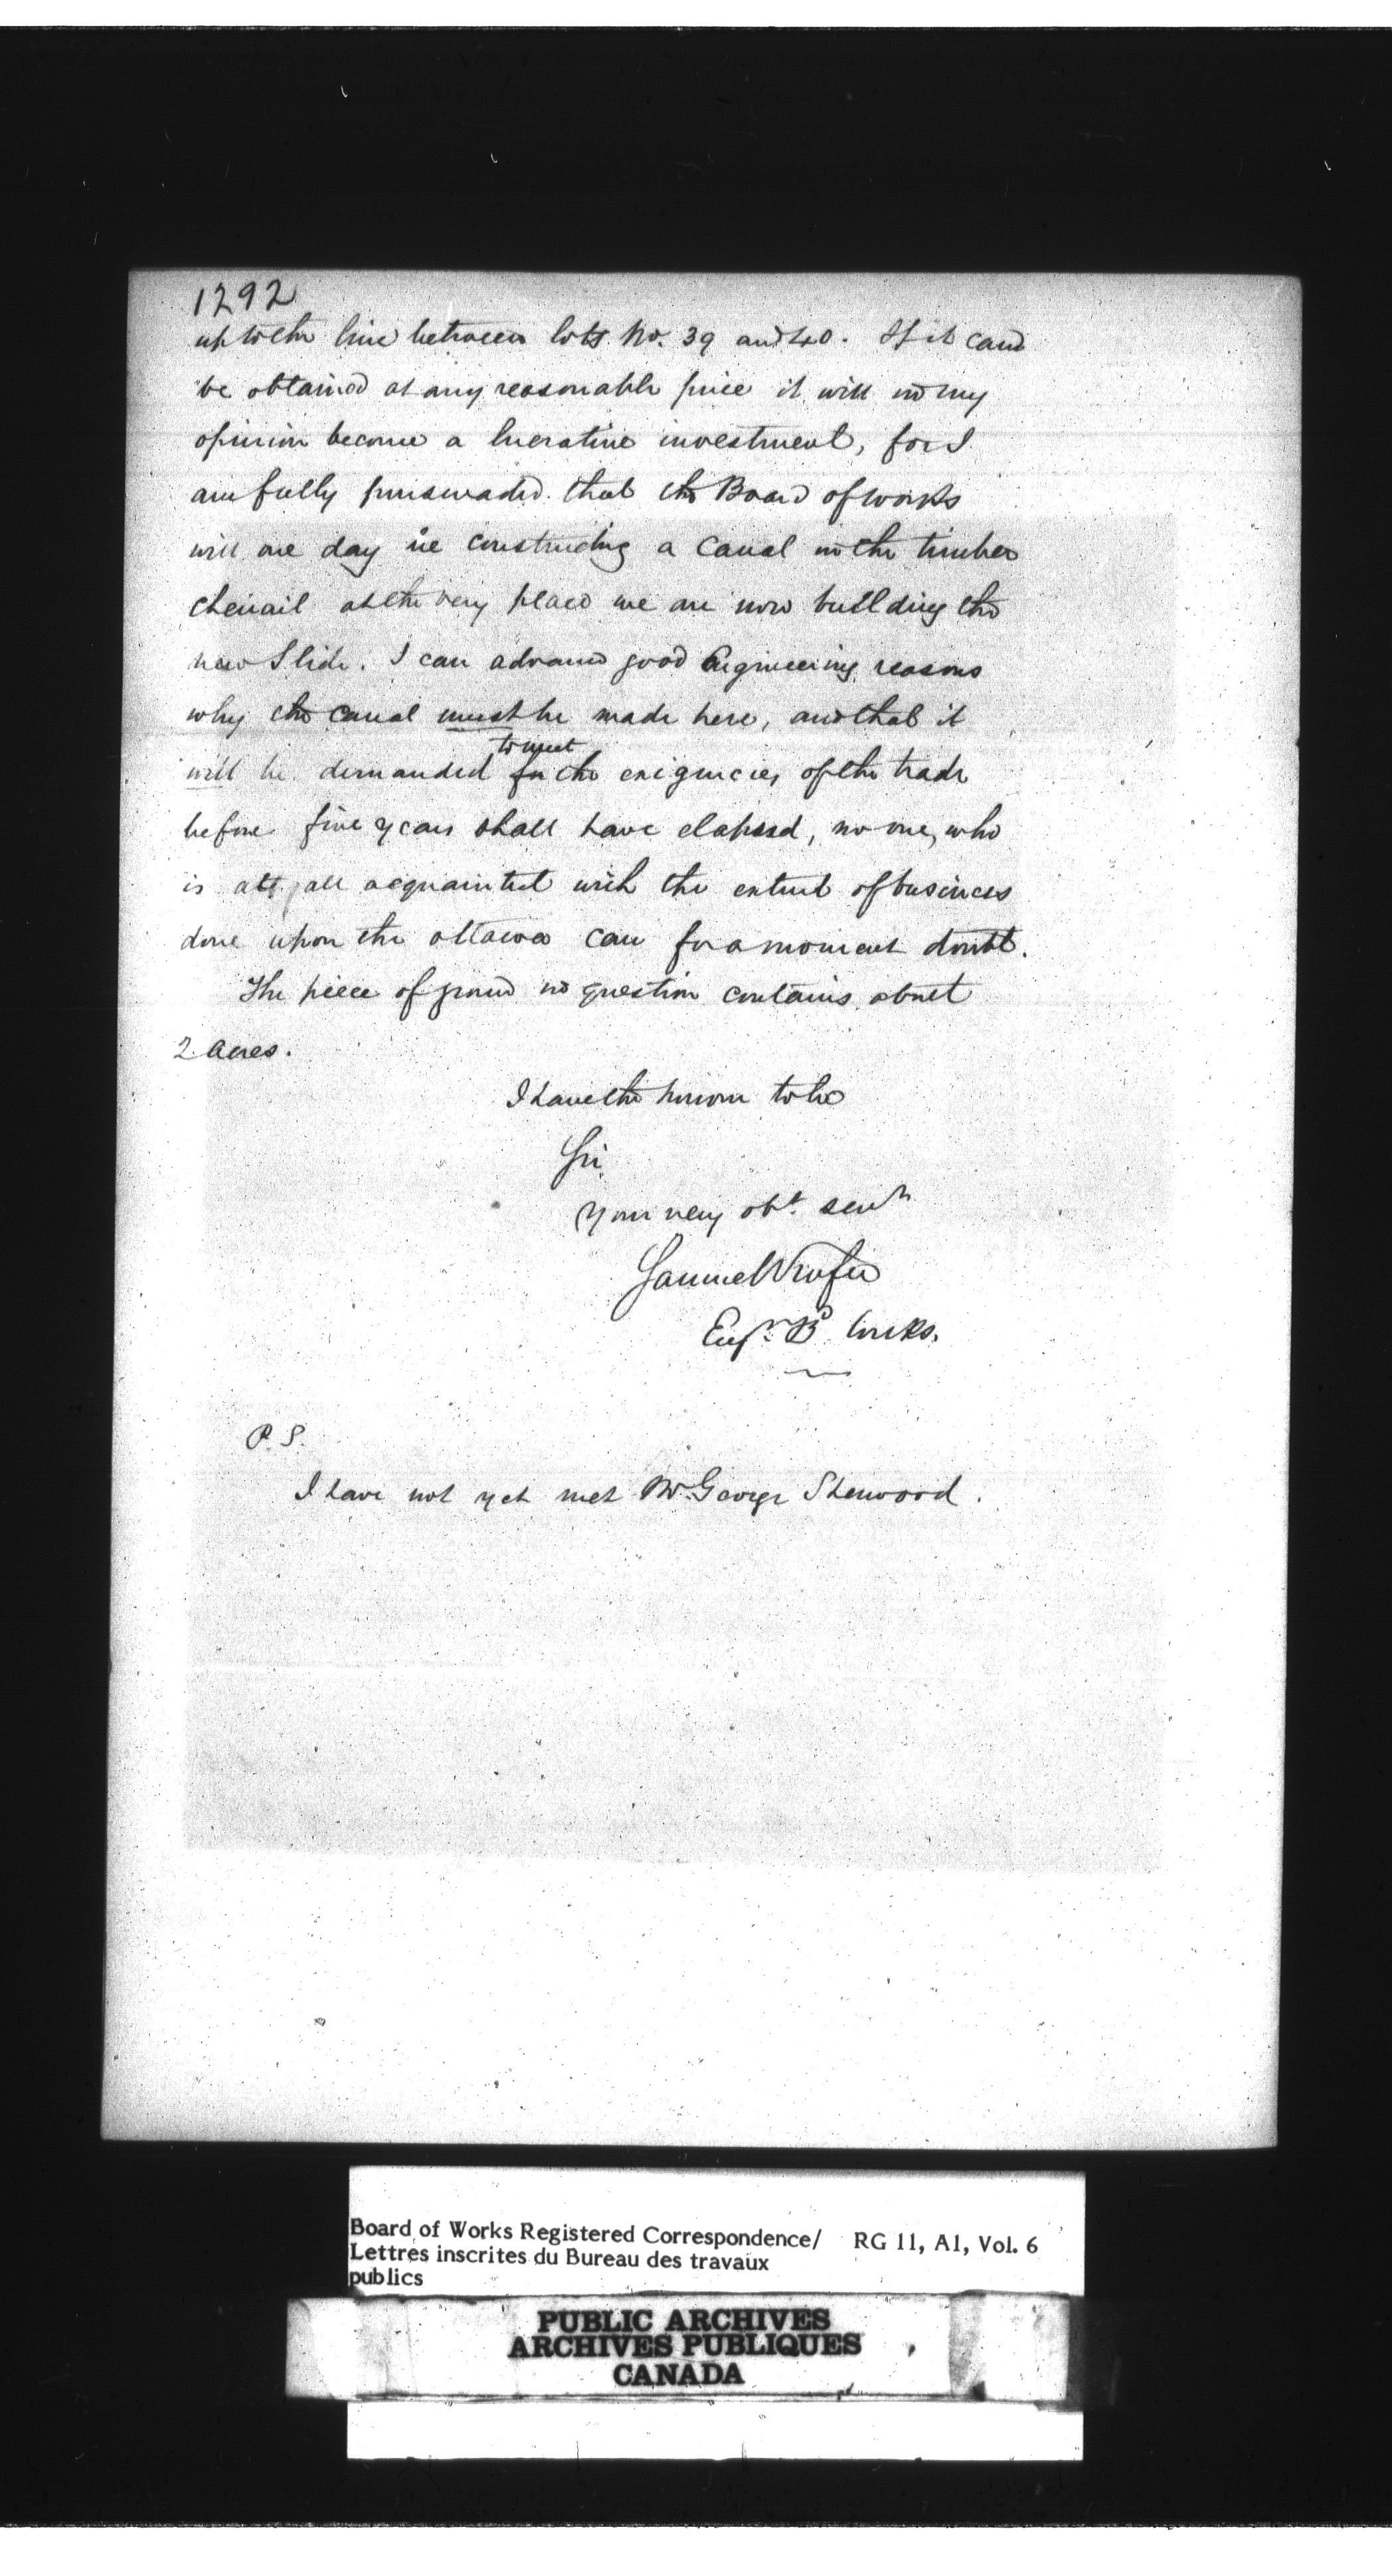 1292
up to the line between lots No. 39 and 40. If it can
be obtained at any reasonable price it will in my
opinion become a lucrative investment, for I
am fully purswaded that the Board of works
will one day be constructing a Canal in the timber
chenail at the very place we are now building the
new Slide. I can advance good Engineering reasons
why the canal must be made here, and that it
to meet
will be demanded for the exigencies of the trade
before five years shall have elapsed, no one, who
is att all acquainted with the extent of business
done upon the ottawa can for a moment doubt.
The piece of ground in question contains about
2 Acres.
I have the honour to be
Sir
Your very obt. servt
Samuel
Engr. Bd Works.
P. S.
I have not yet met Mr George Sherwood.
Board of Works Registered Correspondence/ RG 11, A1, Vol. 6
Lettres inscrites du Bureau des travaux
publics
PUBLIC ARCHIVES
ARCHIVES PUBLIQUES
CANADA